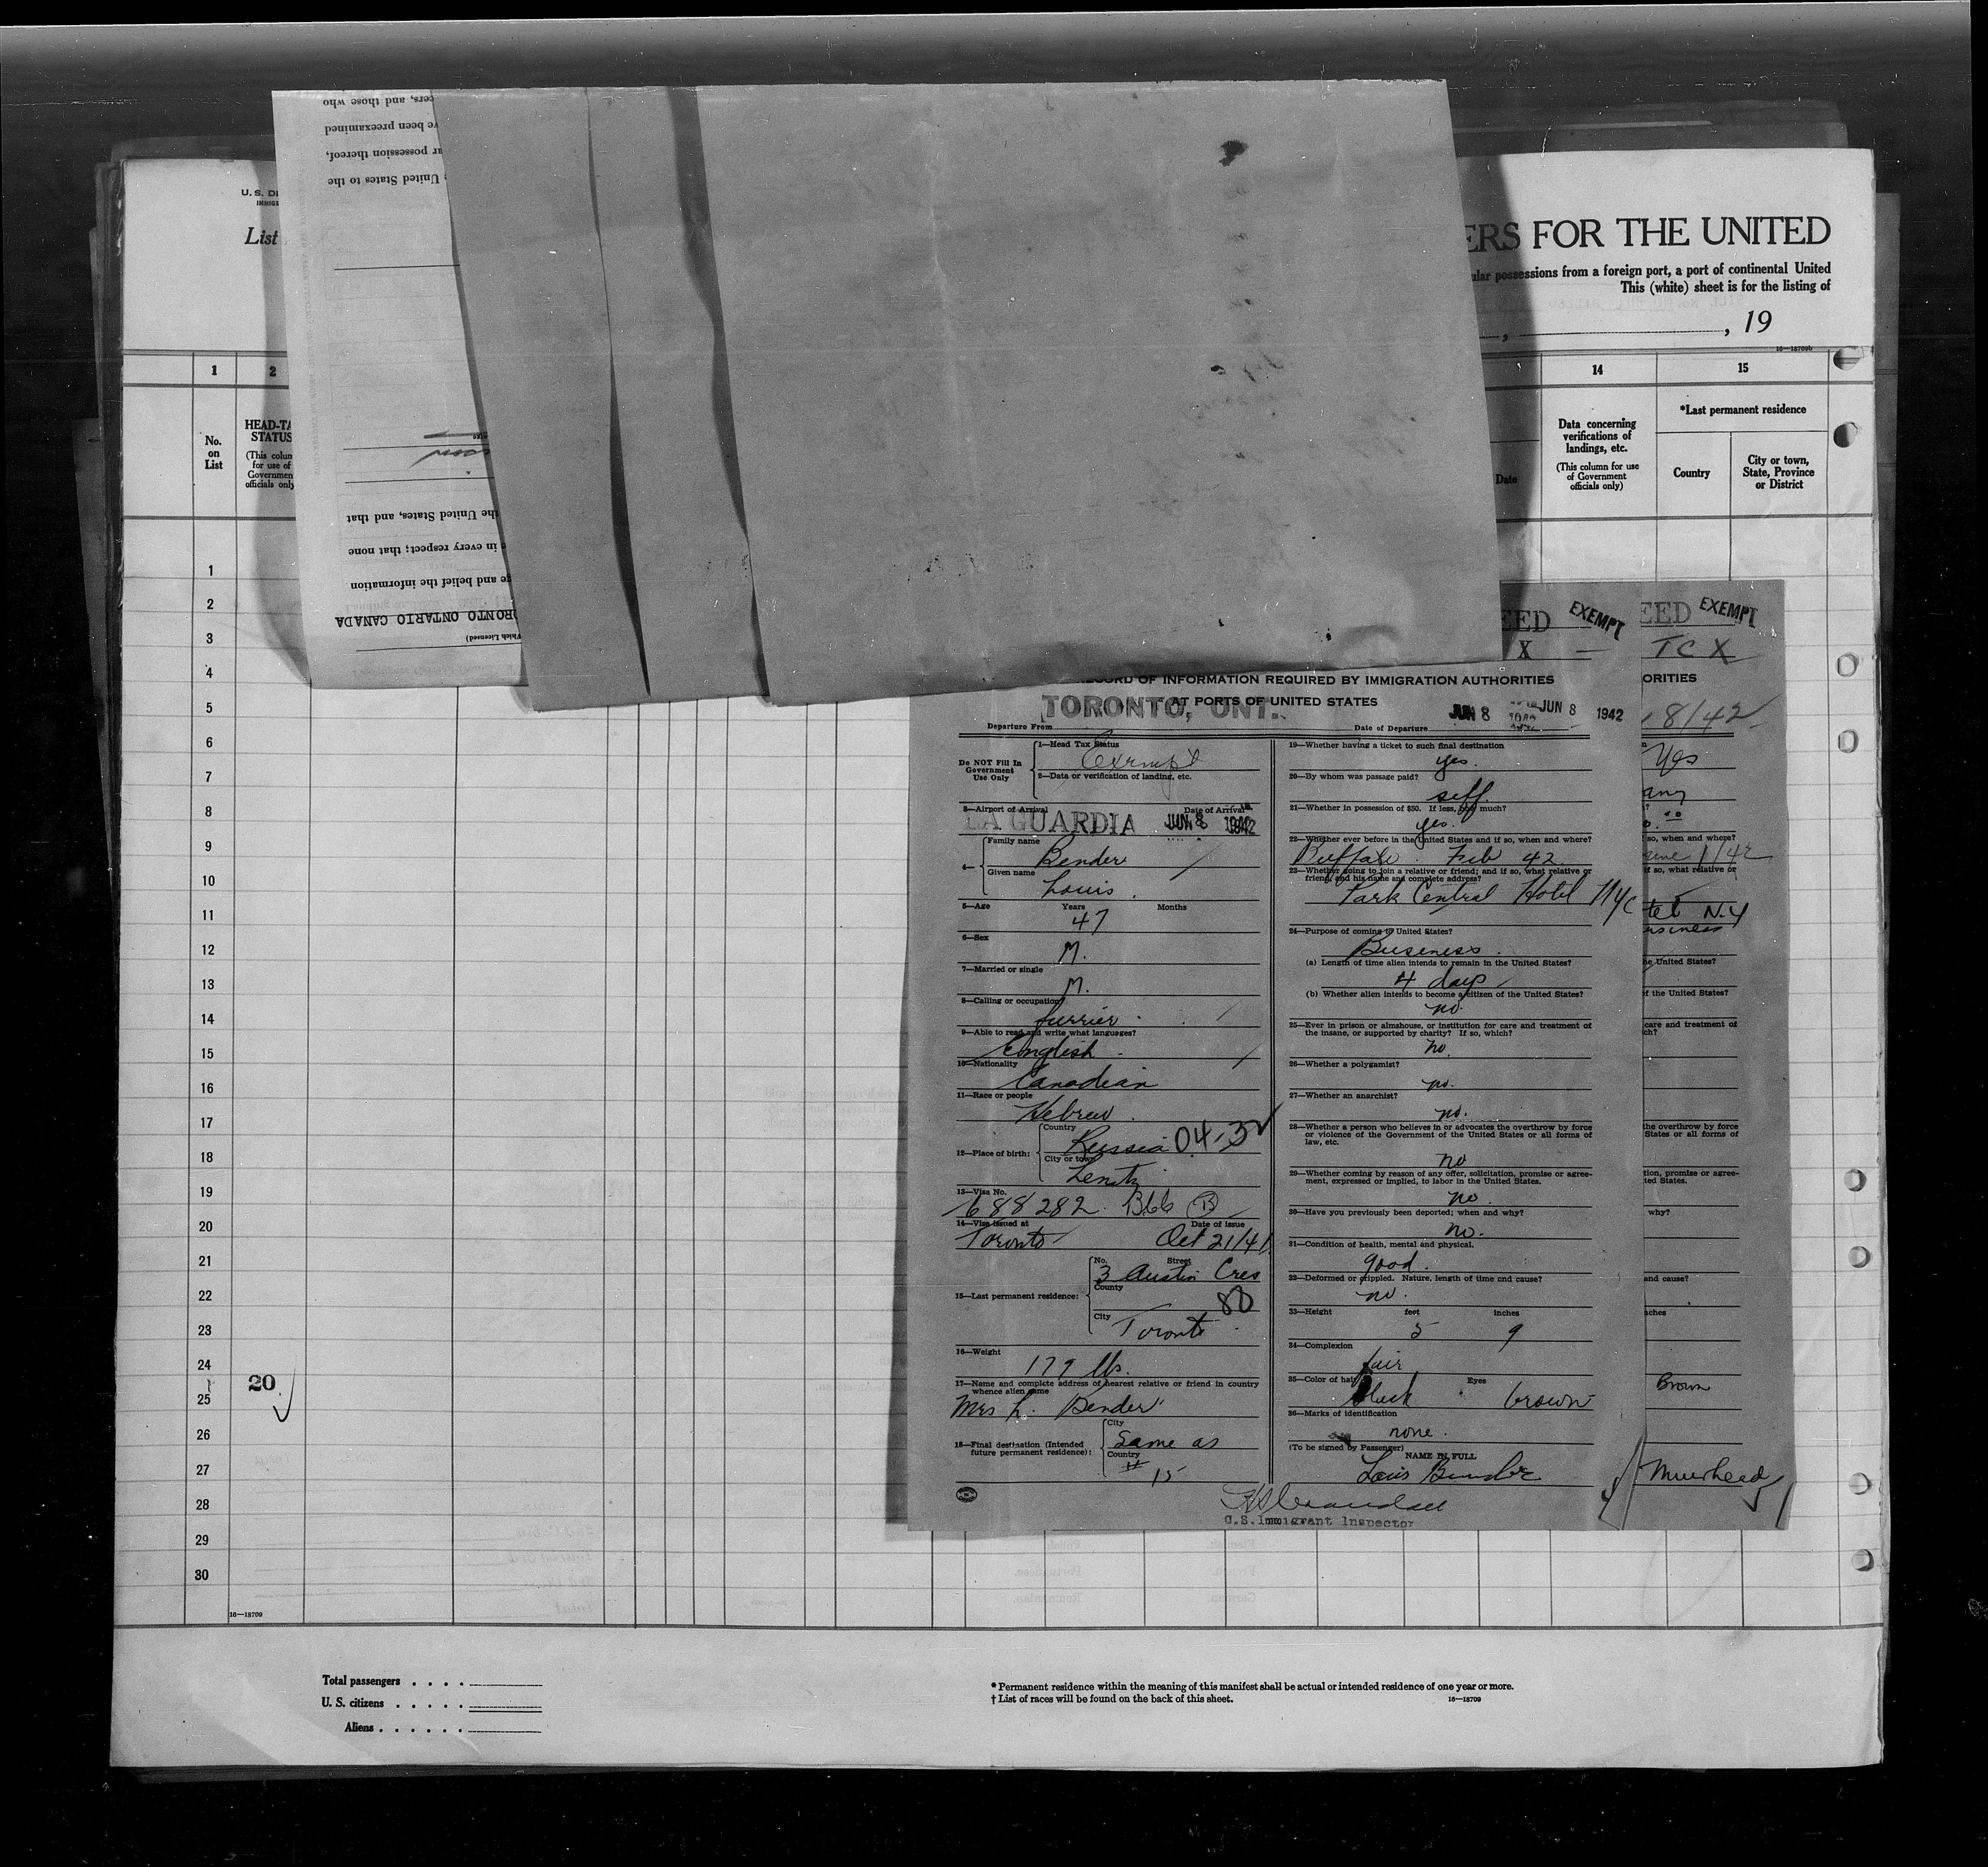 cers, and those who
ve been preexamined
ar possession thereof,
United States to the
the United States, and that
in every respect; that none
ge and belief the information
TORONTO ONTARIO CANADA
Which Licensed)
U. S. DE
IMMIG
List
ERS FOR THE UNITED
ular possessions from a foreign port, a port of continental United
This (white) sheet is for the listing of
, 19
16—18709b
1 2 14 15
No.
on
List
HEAD-TA
STATUS
(This colum
for use of
Governmen
officials only
Date
Data concerning
verifications of
landings, etc.
(This column for use
of Government
officials only)
*Last permanent residence
Country
City or town,
State, Province
or District
1
2
3
4
5
6
7
8
9
10
11
12
13
14
15
16
17
18
19
20
21
22
23
24
20
25
26
27
28
29
30
16—18709
EED EXEMPT
X
RECORD OF INFORMATION REQUIRED BY IMMIGRATION AUTHORITIES
AT PORTS OF UNITED STATES
TORONTO, ONT.
JUN 8 1942 JUN 8 1942
Departure From Date of Departure
Do NOT Fill In
Government
Use Only
1—Head Tax Status
Exempt
2—Data or verification of landing, etc.
3—Airport of Arrival Date of Arrival
LA GUARDIA JUN 8 1942
4—
Family name
Bender
Given name
Louis
5—Age Years Months
47
6—Sex
M.
7—Married or single
M.
8—Calling or occupation
furrier
9—Able to read and write what languages?
English
10—Nationality
Canadian
11—Race or people
Hebrew
12—Place of birth:
Country
Russia 04-32
City or town
13—Visa No.
688282 B66 B
14—Visa issued at Date of issue
Toronto Oct 21/41
15—Last permanent residence:
No. Street
3 Austin Cres
County
80
City
Toronto
16—Weight
179 lbs.
17—Name and complete address of nearest relative or friend in country
whence alien came
Mrs L. Bender
18—Final destination (Intended
future permanent residence):
City
Same as
Country
# 15
19—Whether having a ticket to such final destination
yes.
20—By whom was passage paid?
self
21—Whether in possession of $50. If less, how much?
yes.
22—Whether ever before in the United States and if so, when and where?
Buffalo. Feb 42
23—Whether going to join a relative or friend; and if so, what relative or
friend, and his name and complete address?
Park Central Hotel NYC
24—Purpose of coming to United States?
Buseness
(a) Length of time alien intends to remain in the United States?
4 days
(b) Whether alien intends to become a citizen of the United States?
no.
25—Ever in prison or almshouse, or institution for care and treatment of
the insane, or supported by charity? If so, which?
no.
26—Whether a polygamist?
no.
27—Whether an anarchist?
no.
28—Whether a person who believes in or advocates the overthrow by force
or violence of the Government of the United States or all forms of
law, etc.
no
29—Whether coming by reason of any offer, solicitation, promise or agree-
ment, expressed or implied, to labor in the United States.
no.
30—Have you previously been deported; when and why?
no.
31—Condition of health, mental and physical.
good.
32—Deformed or crippled. Nature, length of time and cause?
no.
33—Height feet inches
5 9
34—Complexion
fair
35—Color of hair Eyes
black brown
36—Marks of identification
none.
(To be signed by Passenger)
NAME IN FULL
Louis Bender
U.S. Immigrant Inspector
EED EXEMPT
TCX
ORITIES
8/42
Yes
so, when and where?
1/42
if so, what relative or
tel N.Y
the United States?
of the United States?
care and treatment of
ch?
the overthrow by force
States or all forms of
tion, promise or agree-
ted States.
why?
and cause?
nches
Brown
Muirhead
Total passengers . . . .
U. S. citizens . . . . .
Aliens . . . . . .
* Permanent residence within the meaning of this manifest shall be actual or intended residence of one year or more.
† List of races will be found on the back of this sheet. 16—18709